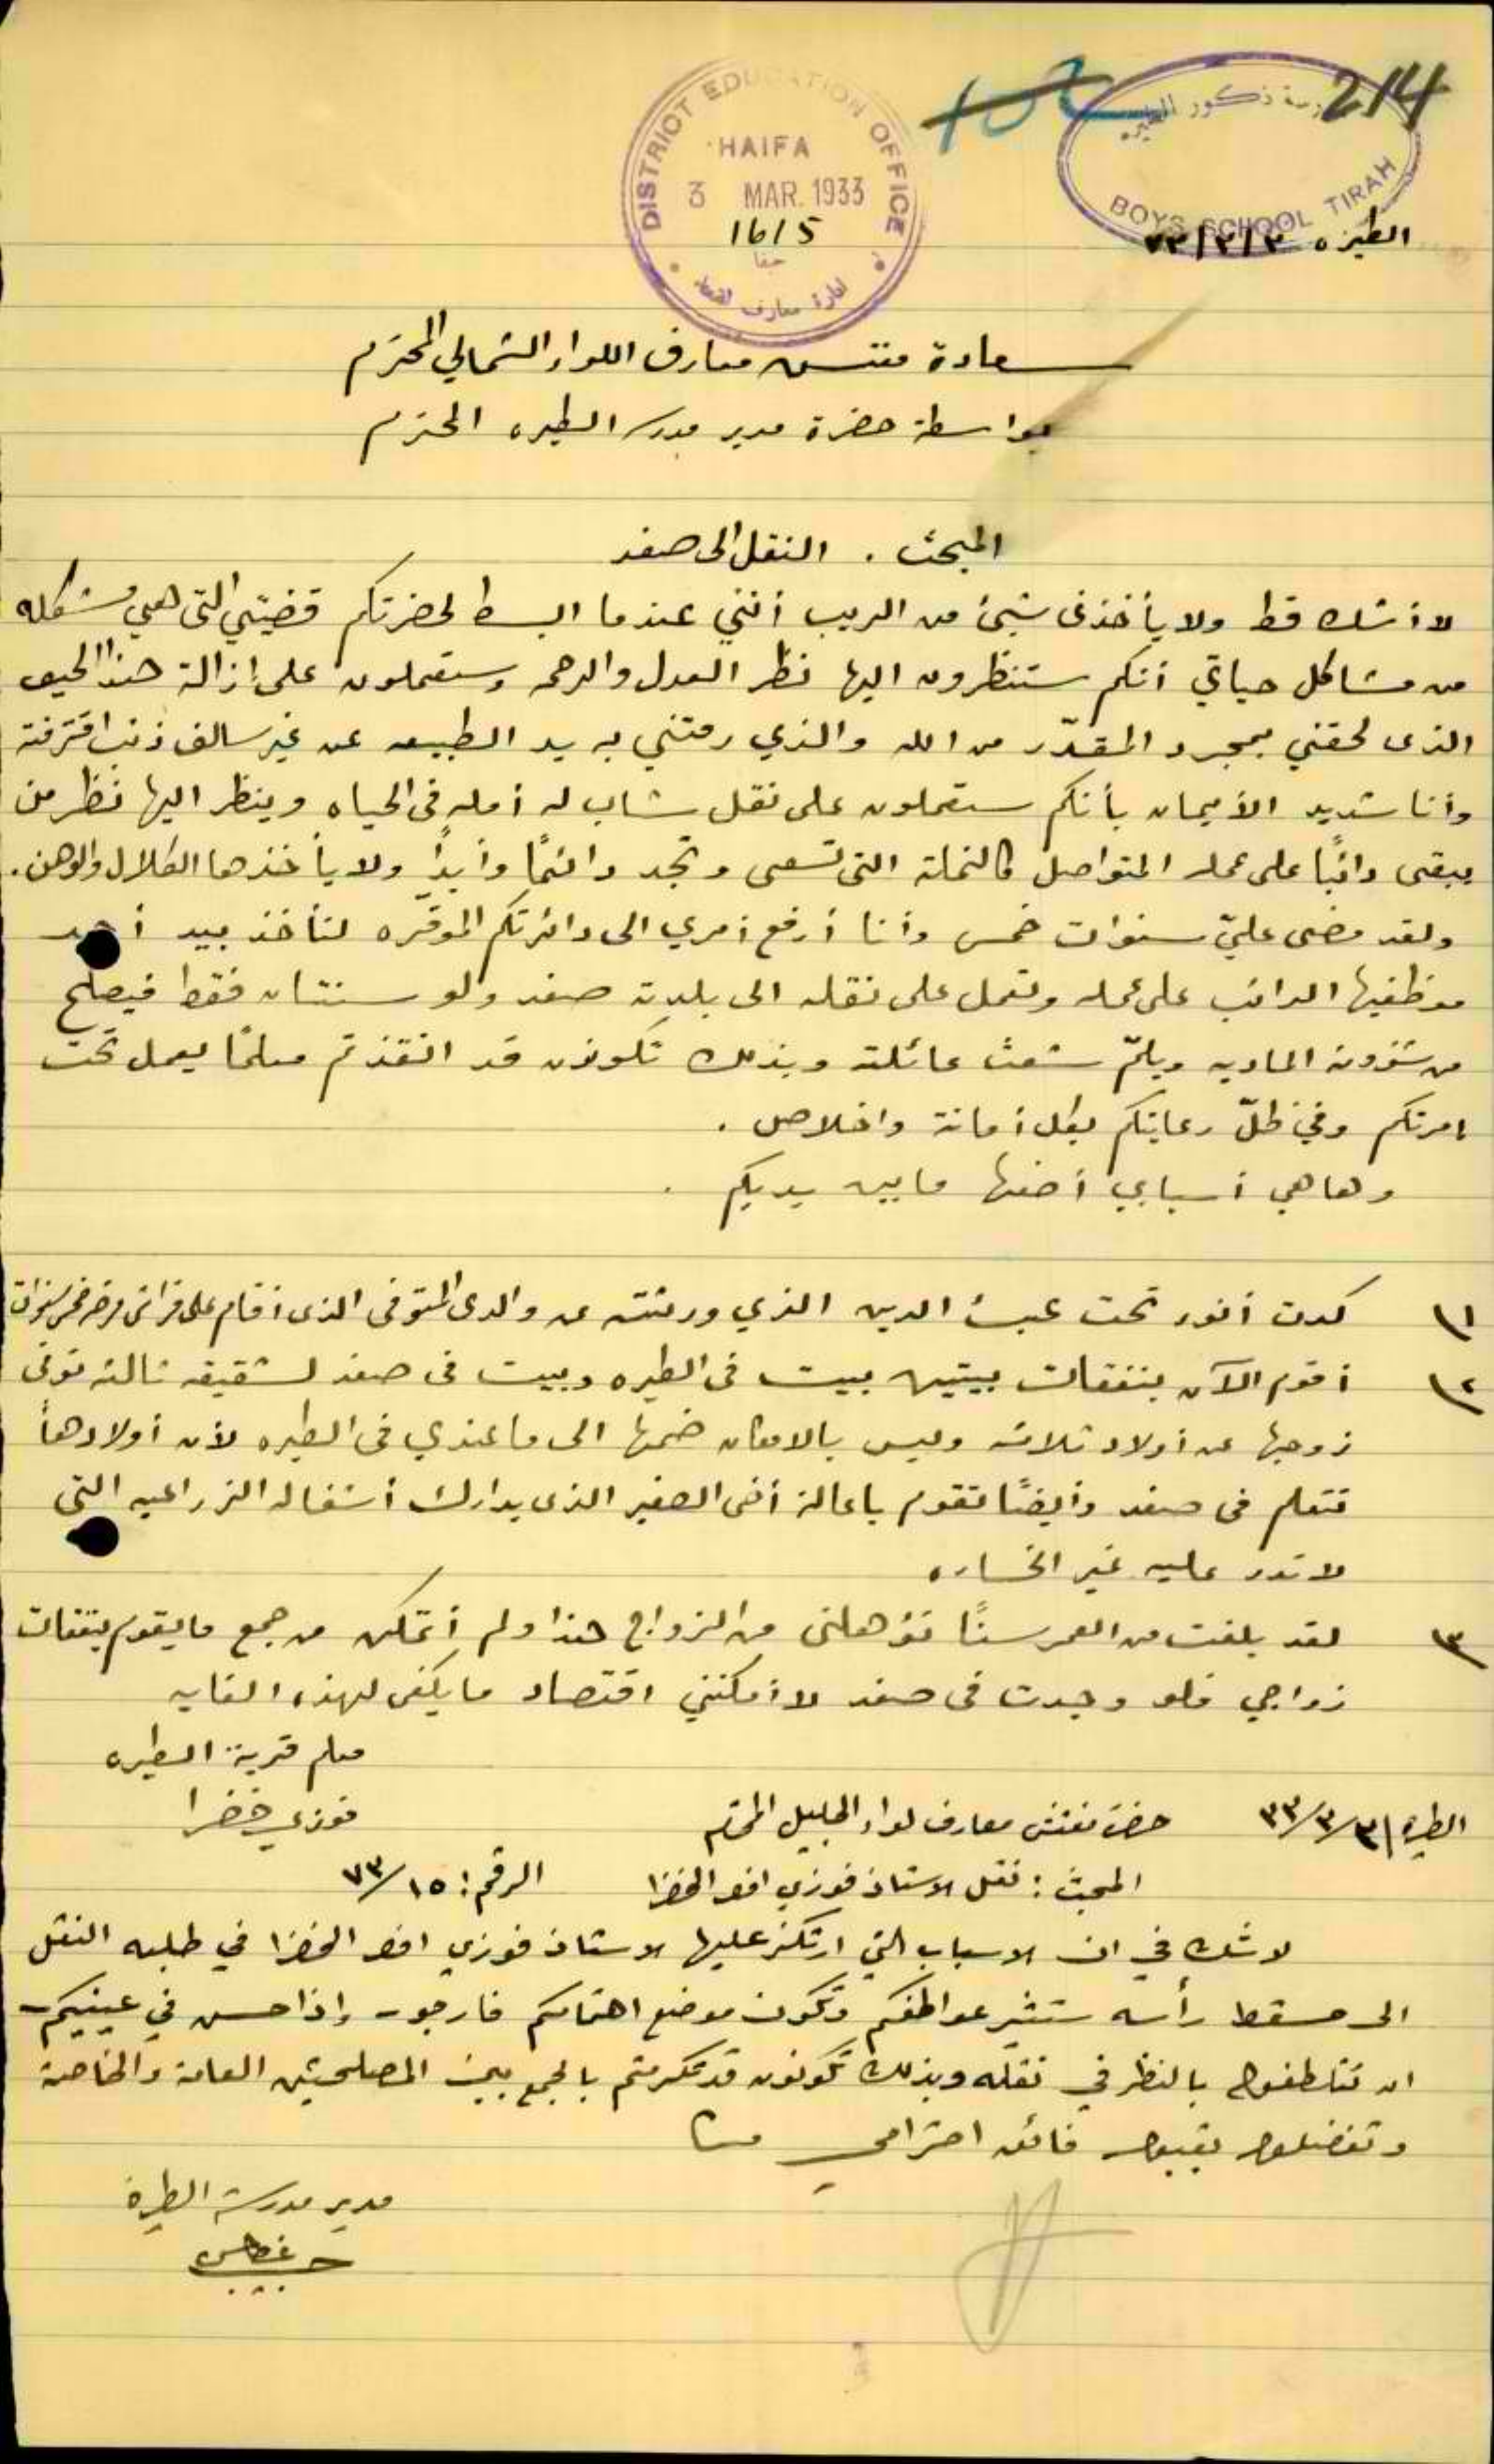 214
مدرسة ذكور الطيره
BOYS SCHOOL TIRAH
DISTRICT EDUCATION OFFICE
HAIFA
3 MAR. 1933
1615
حيفا
الطيره ٣/٣/٣٣
سعادة مفتش معارف اللواء الشمالي المحترم
بواسطة حضرة مدير مدرسة الطيره المحترم
المبحث . النقل الى صفد
لا أشك قط ولا يأخذنى شيئ من الريب أنني عندما ابسط لحضرتكم قضيتي التى هي مشكله
من مشاكل حياتي أنكم ستنظرون اليها نظر العدل والرحمه وستعملون على ازالة هذا الحيف
الذى لحقني بمجرد المقدّر من الله والذي رمتني به يد الطبيعه عن غير سالف ذنب اقترفته
وأنا شديد الأيمان بأنكم ستعملون على نقل شاب له أمله فى الحياه وينظر اليها نظر من
يبقى دائبًا على عمله المتواصل كالنملة التى تسعى وتجد دائمًا وأبدًا ولا يأخذها الكلال والوهن.
ولقد مضى عليّ سنوات خمس وأنا أرفع أمري الى دائرتكم الموقره لتأخذ بيد أحد
موظفيها الدائب على عمله وتعمل على نقله الى بلدته صفد ولو سنتان فقط فيصلح
من شؤونه الماديه ويلمّ شعث عائلته وبذلك تكونون قد انقذتم معلمًا يعمل تحت
امرتكم وفي ظلّ رعايتكم بكل أمانة واخلاص .
وها هي أسبابي أضعها ما بين يديكم .
١) كدت أنوء تحت عبئ الدين الذي ورثته عن والدى المتوفى الذى أقام على فراش مرضه خمس سنوات
٢) أقوم الآن بنفقات بيتين بيت فى الطيره وبيت فى صفد لشقيقه ثالثه توفى
زوجها عن أولاد ثلاثه وليس بالامكان ضمها الى ما عندي فى الطيره لأن أولادها
تتعلم فى صفد وأيضًا تقوم باعالة أخى الصغير الذى يدارك أشغاله الزراعيه التى
لا تدر عليه غير الخساره
٣) لقد بلغت من العمر سنًا تؤهلنى من الزواج هذا ولم أتمكن من جمع ما يقوم بنفقات
زواجي فلو وجدت فى صفد لا أمكنني اقتصاد ما يكفى لهذه الغايه
معلم قرية الطيره
فوزي خضرا
الطيرة ٣/٣/٣٣
حضرة مفتش معارف لواء الجليل المحترم
المبحث : نقل الاستاذ فوزي افندي الخضرا الرقم: ٧٣/١٥
لا شك في ان الاسباب التي ارتكز عليها الاستاذ فوزي افندي الخضرا في طلبه النقل
الى مسقط رأسه ستثير عواطفكم وتكون موضع اهتمامكم فارجو - اذا حسن في عينيكم -
ان تتلطفوا بالنظر في نقله وبذلك تكونون قد تكرمتم بالجمع بين المصلحتين العامة والخاصة
وتفضلوا بقبول فائق احترامي
مدير مدرسة الطيرة